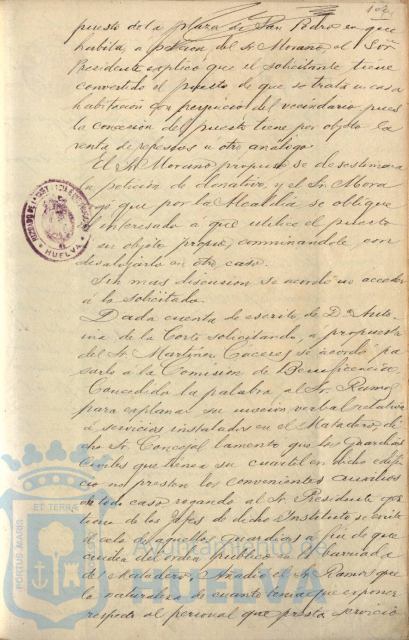 102
puesto de la plaza de San Pedro en que
habita, a petición del Sr. Morano, el Señor
Presidente explicó que el solicitante tiene
convertido el puesto de que se trata en casa
habitación con perjuicio del vecindario, pues
la concesión del puesto tiene por objeto la
venta de repesos u otro análogo.
El Sr. Morano propuso se desestimara
la petición de donativo, y el Sr. Mora
que por la Alcaldía se obligue
interesado a que utilice el puesto
en objeto propio, conminándole con
desalojarlo en otro caso.
Sin mas discusion se acordó no acceder
á lo solicitado.
Dada cuenta de escrito de Dª Anto-
nia de la Corte solicitando, a propuesta
del Sr. Martínez Caceres se acordó pa
sarlo a la Comisión de Beneficencia.
Concedida la palabra al Sr. Ramos
para explanar su moción verbal relativa
á servicios instalados en el Matadero, di
cho Sr. Concejal lamentó que los Guardias
Civiles que tienen su cuartel en dicho edifi
cio no presten los convenientes auxilios
en todo caso, rogando al Sr. Presidente ges
tione de los Jefes de dicho Instituto se excite
el celo de aquellos Guardias a fin de que
cuiden del orden público en la barriada
del Matadero. Añadio el Sr. Ramos que
la naturaleza de cuanto tenia que exponer
respecto al personal que presta servicio
HUELVA
PORTUS MARIS
ET TERRAE
Ayuntamiento de
HUELVA